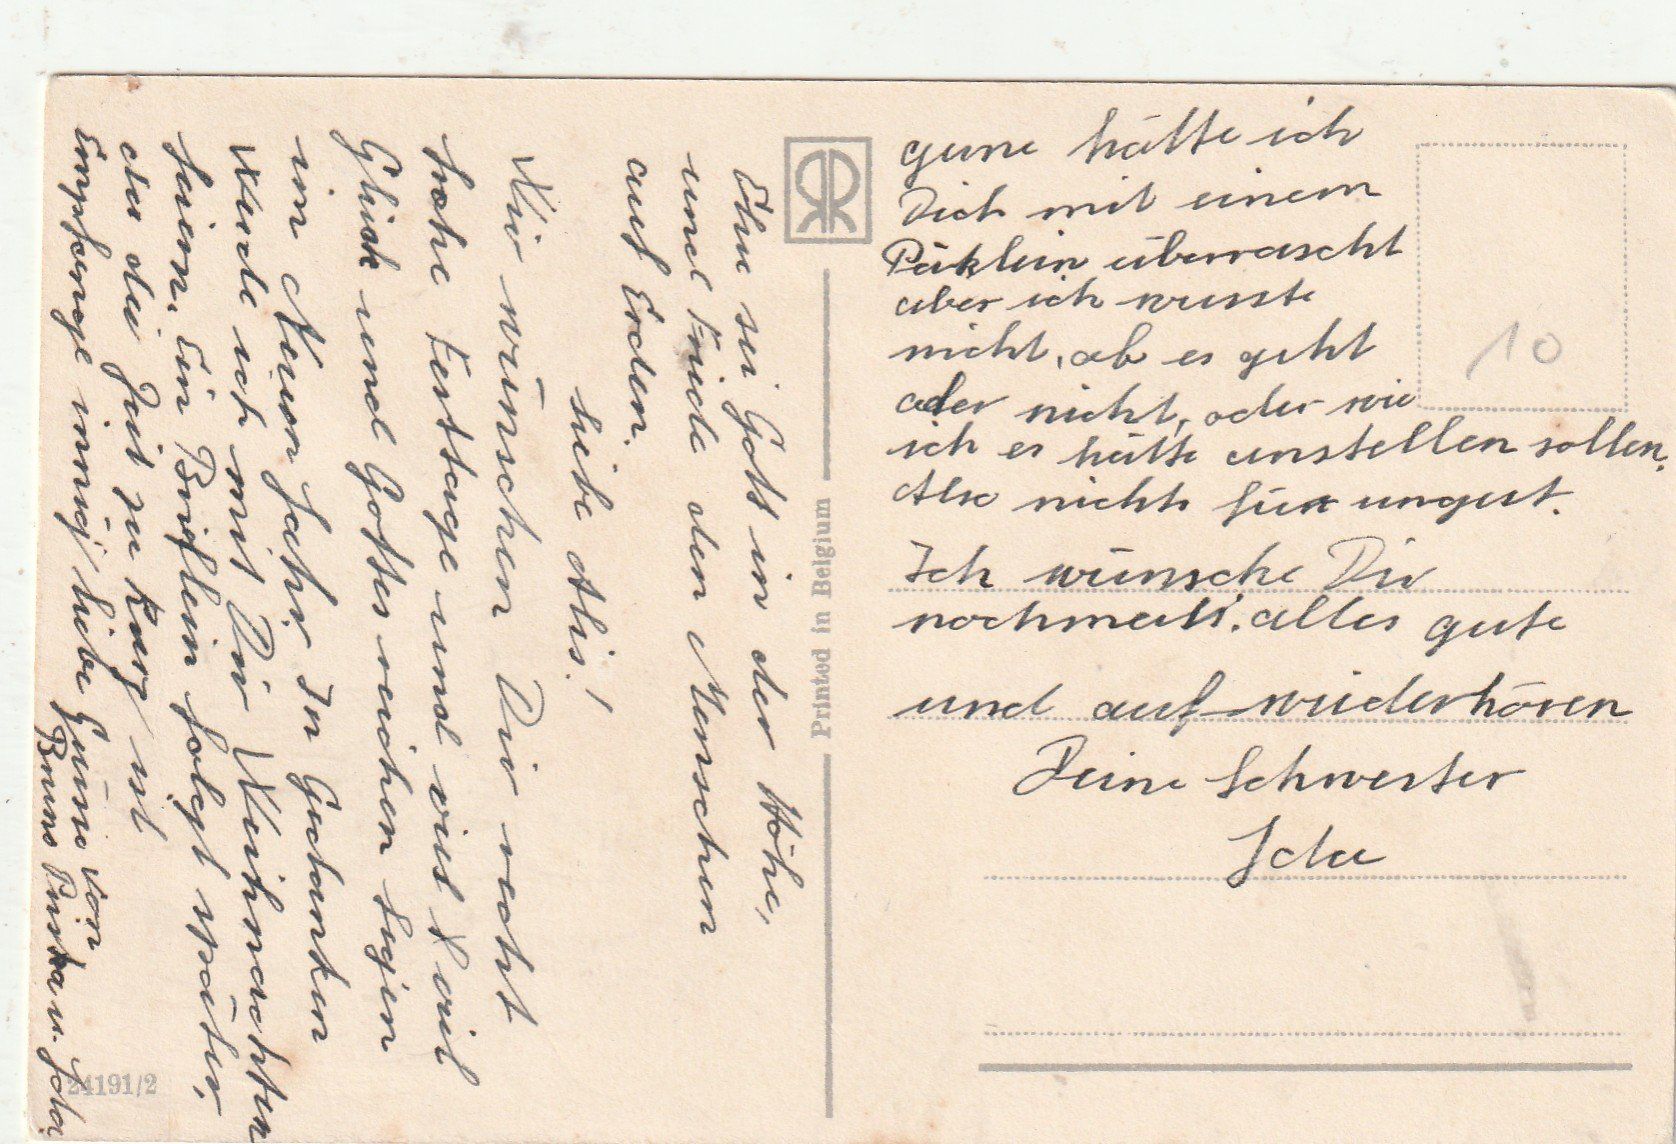 Ehre sei Gott in der Höhe,
und Friede den Menschen
auf Erden.
Liebe Alis!
Wir wünschen Dir recht
frohe Festtage und viel
Glück und Gottes reichen Segen
im Neuen Jahr. In Gedanken
Werde ich mit Dir Weihnachten
feiern. Ein Brieflein folgt später,
da die Zeit zu karg ist
Empfange innig liebe Grüsse von
Bruno u. Ida
24191/2
Printed in Belgium
gerne hätte ich
Dich mit einem
Päklein überrascht
aber ich wusste
nicht, ob es geht
oder nicht, oder wie
ich es hätte anstellen sollen.
Also nichts für ungut.
Ich wünsche Dir
nochmals alles gute
und auf wiederhören
Deine Schwester
Ida
10